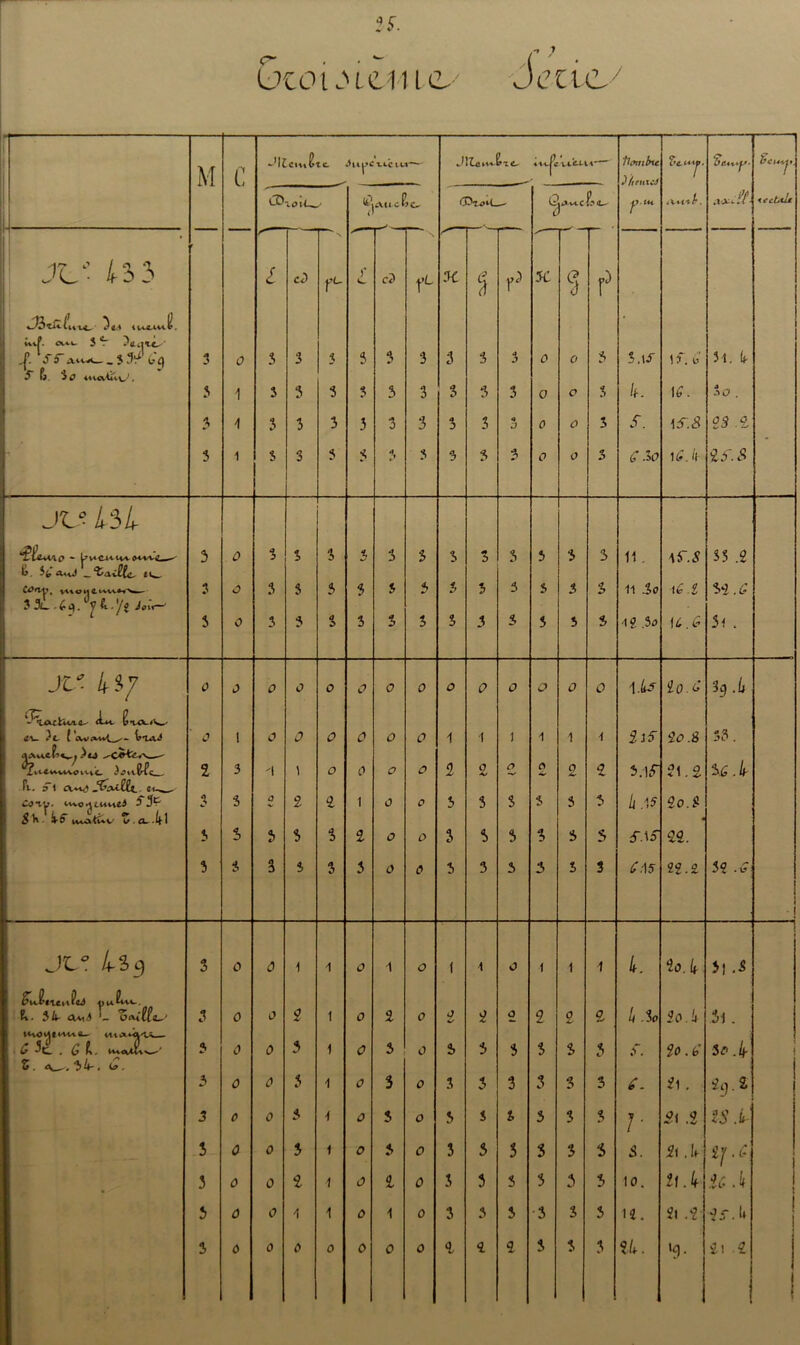 25.
Troisième Série
M C Membre supérieur Membre inférieur Nombre Temp. Temp. Temp.
Droit Gauche Droit Gauche d'heures p.m. amb. axill. rectale
é cd pt é cd pt H g pd H g pd
N° 433
3 0 3 3 3 3 3 3 3 3 3 0 0 3 3.15 15.6 31.4
3 1 3 3 3 3 3 3 3 3 3 0 0 3 4. 16. 30.
3 1 3 3 3 3 3 3 3 3 3 0 0 3 5. 15.8 28.2
3 1 3 3 3 3 3 3 3 3 3 0 0 3 6.30 16.4 25.8
N° 434
Pleuro-pneumonie
h. 36 ans _ Taille
3 0 3 3 3 3 3 3 3 3 3 3 3 3 11. 15.8 33.2
3 0 3 3 3 3 3 3 3 3 3 3 3 3 11.30 16.2 32.6
3 0 3 3 3 3 3 3 3 3 3 3 3 3 12.30 16.6 31.
N° 437
Fracture du crâne
0 0 0 0 0 0 0 0 0 0 0 0 0 0 1.45 20.6 39.4
0 1 0 0 0 0 0 0 1 1 1 1 1 1 2.15 20.8 38.
2 3 1 1 0 0 0 0 2 2 2 2 2 2 3.15 21.2 36.4
3 3 2 2 2 1 0 0 3 3 3 3 3 3 4.15 20.8
3 3 3 3 3 2 0 0 3 3 3 3 3 3 5.15 22.
3 3 3 3 3 3 0 0 3 3 3 3 3 3 6.15 22.2 32.6
N° 439
Tubercules pulm.
h. 34 ans _ Taille
3 0 0 1 1 0 1 0 1 1 0 1 1 1 4. 20.4 31.8
3 0 0 2 1 0 2 0 2 2 2 2 2 2 4.30 20.4 31.
3 0 0 3 1 0 3 0 3 3 3 3 3 3 5. 20.6 30.4
3 0 0 3 1 0 3 0 3 3 3 3 3 3 6. 21. 29.2
3 0 0 3 1 0 3 0 3 3 3 3 3 3 7. 21.2 28.4
3 0 0 3 1 0 3 0 3 3 3 3 3 3 8. 21.4 27.6
3 0 0 2 1 0 2 0 3 3 3 3 3 3 10. 21.4 26.4
3 0 0 1 1 0 1 0 3 3 3 3 3 3 12. 21.2 25.4
3 0 0 0 0 0 0 0 2 2 2 3 3 3 24. 19. 21.2